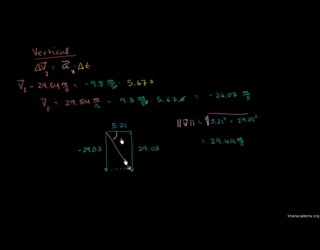 Vertical
Δv⃗ᵧ = a⃗ᵧ · Δt
v⃗f - 29.54 m/s = -9.8 m/s² · 5.67 s
v⃗f = 29.54 m/s - 9.8 m/s² · 5.67 s = -26.03 m/s
5.21
-29.03
29.03
||v⃗|| = √5.21² + 29.03²
= 29.49 m/s
khanacademy.org